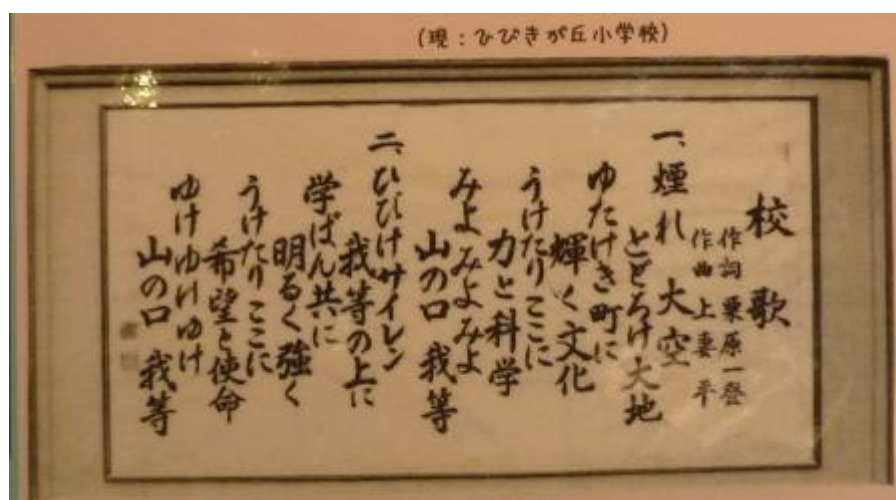 (現:ひびきが丘小学校)
校歌
作詞 栗原一登
作曲 上妻 平
一、煙れ 大空
とどろけ大地
ゆたけき町に
輝く文化
うけたりここに
力と科学
みよみよみよ
山の口 我等
二、ひびけサイレン
我等の上に
学ばん共に
明るく強く
うけたりここに
希望と使命
ゆけゆけゆけ
山の口 我等